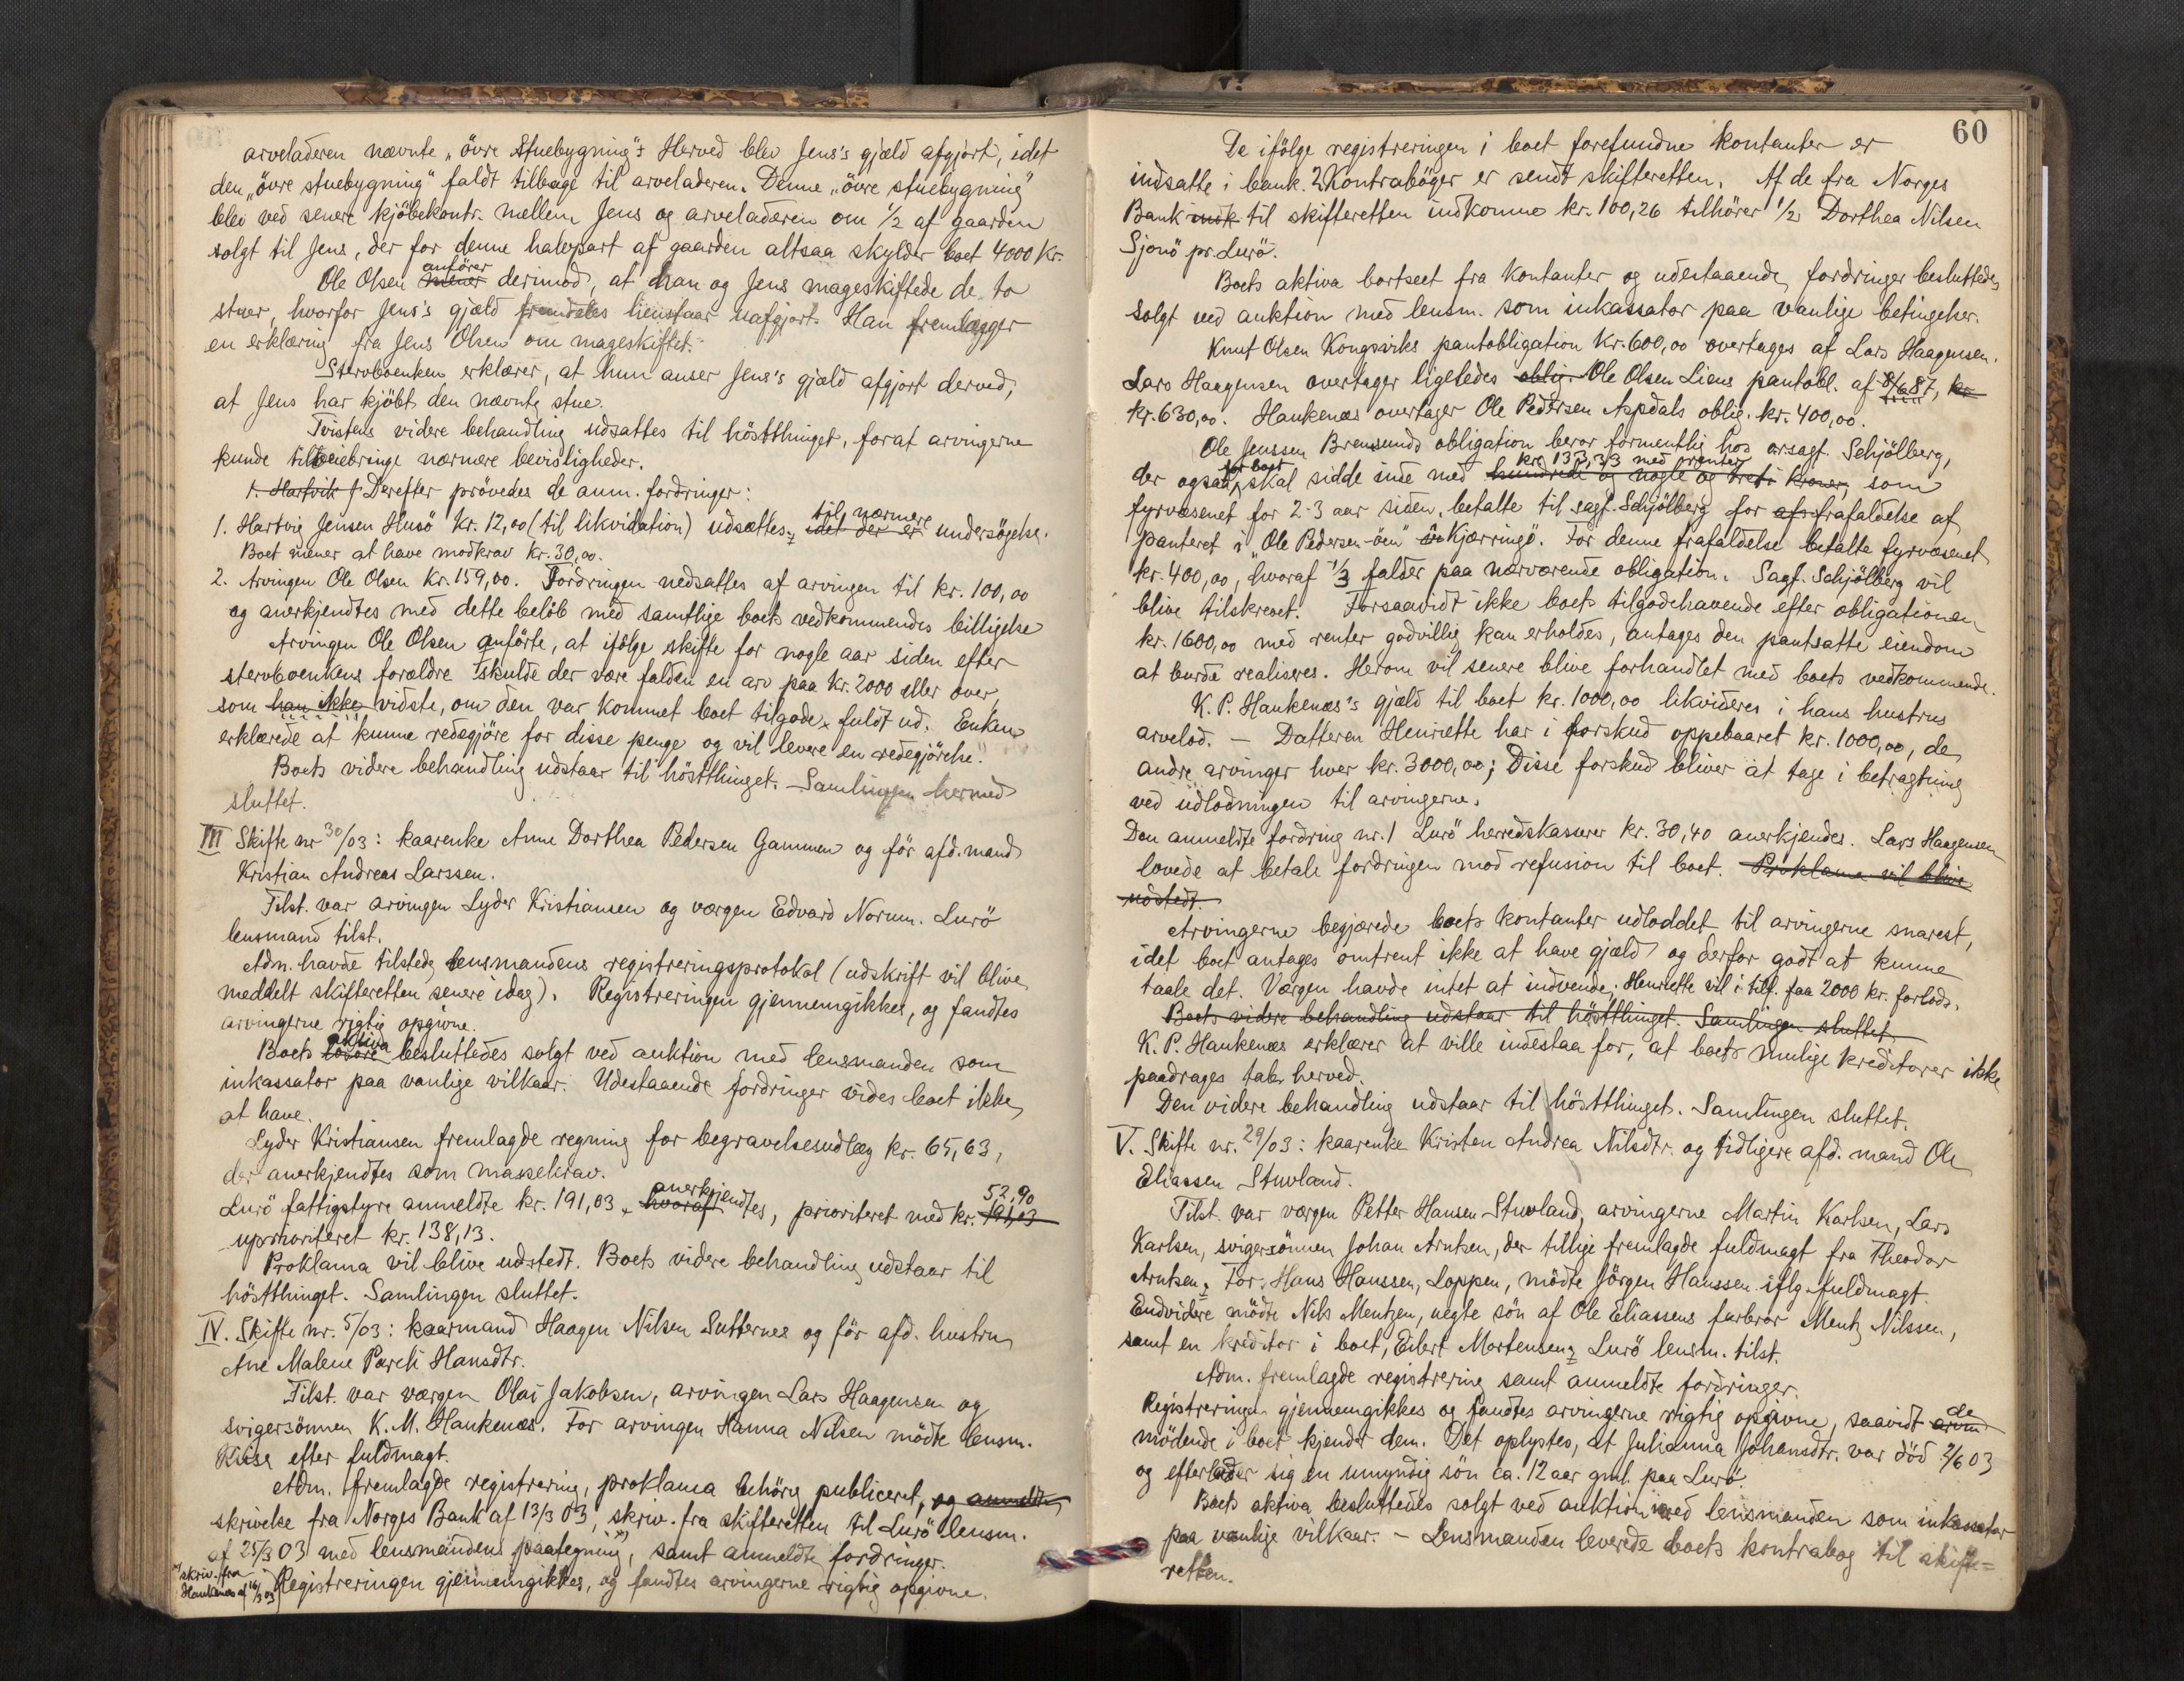 arveladeren nævnte „övre stuebygning". Herved blev Jens's gjæld afgjort, idet
den „övre stuebygning" faldt tilbage til arveladeren. Denne „övre stuebygning"
blev ved senere kjöbekontr. mellem Jens og arveladeren om 1/2 af gaarden
solgt til Jens, der for denne halvpart af gaarden altsaa skylder boet 4000 kr.
Ole Olsen mener anförer derimod, at han og Jens mageskiftede de to
stuer, hvorfor Jens's gjæld fremdeles henstaar uafgjort. Han fremlægger
en erklæring fra Jens Olsen om mageskiftet.
Stervboenken erklærer, at hun anser Jens's gjæld afgjort derved,
at Jens har kjöbt den nævnte stue.
Tvistens videre behandling udsattes til höstthinget, forat arvingerne
kunde tilveiebringe nærmere bevisligheder.
1. Hartvik J Derefter prövedes de anm. fordringer:
1. Hartvig Jensen Husö kr. 12,00 (til likvidation) udsættes idet der er til nærmere undersögelse.
Boet mener at have modkrav kr. 30,00.
2. Arvingen Ole Olsen kr. 159,00. Fordringen nedsattes af arvingen til kr. 100,00
og anerkjendtes med dette belöb med samtlige boets vedkommendes billigelse
Arvingen Ole Olsen anförte, at ifölge skifte for nogle aar siden efter
stervboenkens forældre skulde der være falden en arv paa kr. 2000 eller over,
som han ikke vidste, om den var kommet boet tilgode fuldt ud. Enken
erklærede at kunne redegjöre for disse penge og vil levere en redegjörelse.
Boets videre behandling udstaar til höstthinget. Samlingen hermed
sluttet.
III Skifte nr 30/03: kaarenke Anne Dorthea Pedersen Gammen og för afd. mand
Kristian Andreas Larssen.
Tilst. var arvingen Lyder Kristiansen og værgen Edvard Norum. Lurö
lensmand tilst.
Adm. havde tilstede lensmandens registreringsprotokol (udskrift vil blive
meddelt skifteretten senere idag). Registreringen gjennemgikkes, og fandtes
arvingerne rigtig opgivne.
Boets lösöre aktiva besluttedes solgt ved auktion med lensmanden som
inkassator paa vanlige vilkaar. Udestaaende fordringer vides boet ikke
at have.
Lyder Kristiansen fremlagde regning for begravelsesudlæg kr. 65,63,
der anerkjendtes som massekrav.
Lurö fattigstyre anmeldte kr. 191,03, hvoraf anerkjendtes, prioriteret med kr. 191,03 52,90
uprioriteret kr. 138,13.
Proklama vil blive udstedt. Boets videre behandling udstaar til
höstthinget. Samlingen sluttet.
IV. Skifte nr. 5/03: kaarmand Haagen Nilsen Sutternes og för afd. hustru
Ane Malene Pareli Hansdtr.
Tilst. var værgen Olai Jakobsen, arvingen Lars Haagensen og
svigersönnen K. M. Haukenæs. For arvingen Hanna Nilsen mödte lensm.
efter fuldmagt.
Adm. fremlagde registrering, proklama behörig publiceret, og anmeldte
skrivelse fra Norges Bank af 13/3 03, skriv. fra skifteretten til Lurö lensm.
af 25/3 03 med lensmandens paategning x), samt anmeldte fordringer.
x) skriv. fra
Haukenæs af 16/3 03
Registreringen gjennemgikkes, og fandtes arvingerne rigtig opgivne.
60
De ifölge registreringen i boet forefundne kontanter er
indsatte i bank. 2 Kontraböger er sendt skifteretten. Af de fra Norges
Bank indk til skifteretten indkomne kr. 100,26 tilhörer 1/2 Dorthea Nilsen
Sjonö pr. Lurö.
Boets aktiva bortseet fra kontanter og udestaaende fordringer besluttedes
solgt ved auktion med lensm. som inkassator paa vanlige betingelser.
Knut Olsen Kongsviks pantobligation kr. 600,00 overtages af Lars Haagensen.
Lars Haagensen overtager ligeledes oblig. Ole Olsen Liens pantobl. af 8/6 87, kr
kr. 630,00. Haukenæs overtager Ole Pedersen Aspdals oblig. kr. 400,00.
Ole Jenssen Bremsunds obligation beror formentlig hos orsagf. Schjölberg,
der ogsaa for boet skal sidde inde med hundrede og nogle og treti kroner, kr. 133,33 med renter som
fyrvæsenet for 2-3 aar siden, betalte til sagf. Schjölberg for afr frafaldelse af
panteret i „Ole Pedersen-öen" i Kjærringö. For denne frafaldelse betalte fyrvæsenet
kr. 400,00, hvoraf 1/3 falder paa nærværende obligation. Sagf. Schjölberg vil
blive tilskrevet. Forsaavidt ikke boets tilgodehavende efter obligationen
kr. 1600,00 med renter godvillig kan erholdes, antages den pantsatte eiendom
at burde realiseres. Herom vil senere blive forhandlet med boets vedkommende.
K. P. Haukenæs's gjæld til boet kr. 1000,00 likvideres i hans hustrus
arvelod. – Datteren Henriette har i forskud oppebaaret kr. 1000,00, de
andre arvinger hver kr. 3000,00; Disse forskud bliver at tage i betragtning
ved udlodningen til arvingerne.
Den anmeldte fordring nr. 1 Lurö herredskasserer kr. 30,40 anerkjendes. Lars Haagensen
lovede at betale fordringen mod refusion til boet. Proklama vil blive
udstedt.
Arvingerne begjærede boets kontanter udloddet til arvingerne snarest,
idet boet antages omtrent ikke at have gjæld og derfor godt at kunne
taale det. Værgen havde intet at indvende; Henriette vil i tilf. faa 2000 kr. forlods.
Boets videre behandling udstaar til höstthinget. Samlingen sluttet.
K. P. Haukenæs erklærer at ville indestaa for, at boets mulige kreditorer ikke
paadrages tab herved.
Den videre behandling udstaar til höstthinget. Samlingen sluttet.
V. Skifte nr. 29/03: kaarenke Kristen Andrea Nilsdtr. og tidligere afd. mand Ole
Eliassen Stuvland.
Tilst. var værgen Petter Hansen Stuvland, arvingerne Martin Karlsen, Lars
Karlsen, svigersönnen Johan Arntsen, der tillige fremlagde fuldmagt fra Theodor
Arntsen. For Hans Hanssen, Loppen, mödte Jörgen Hanssen iflg. fuldmagt.
Endvidere mödte Nils Mentzen, uegte sön af Ole Eliassens farbror Mentz Nilssen,
samt en kreditor i boet, Eilert Mortensen, Lurö lensm. tilst.
Adm. fremlagde registrering samt anmeldte fordringer.
Registreringen gjennemgikkes og fandtes arvingerne rigtig opgivne, saavidt arvin de
mödende i boet kjendte dem. Det oplystes, at Julianna Johansdtr. var död 2/6 03
og efterlader sig en umyndig sön ca. 12 aar gml. paa Lurö.
Boets aktiva besluttedes solgt ved auktion med lensmanden som inkassator
paa vanlige vilkaar. – Lensmanden leverede boets kontrabog til skifte=
retten.